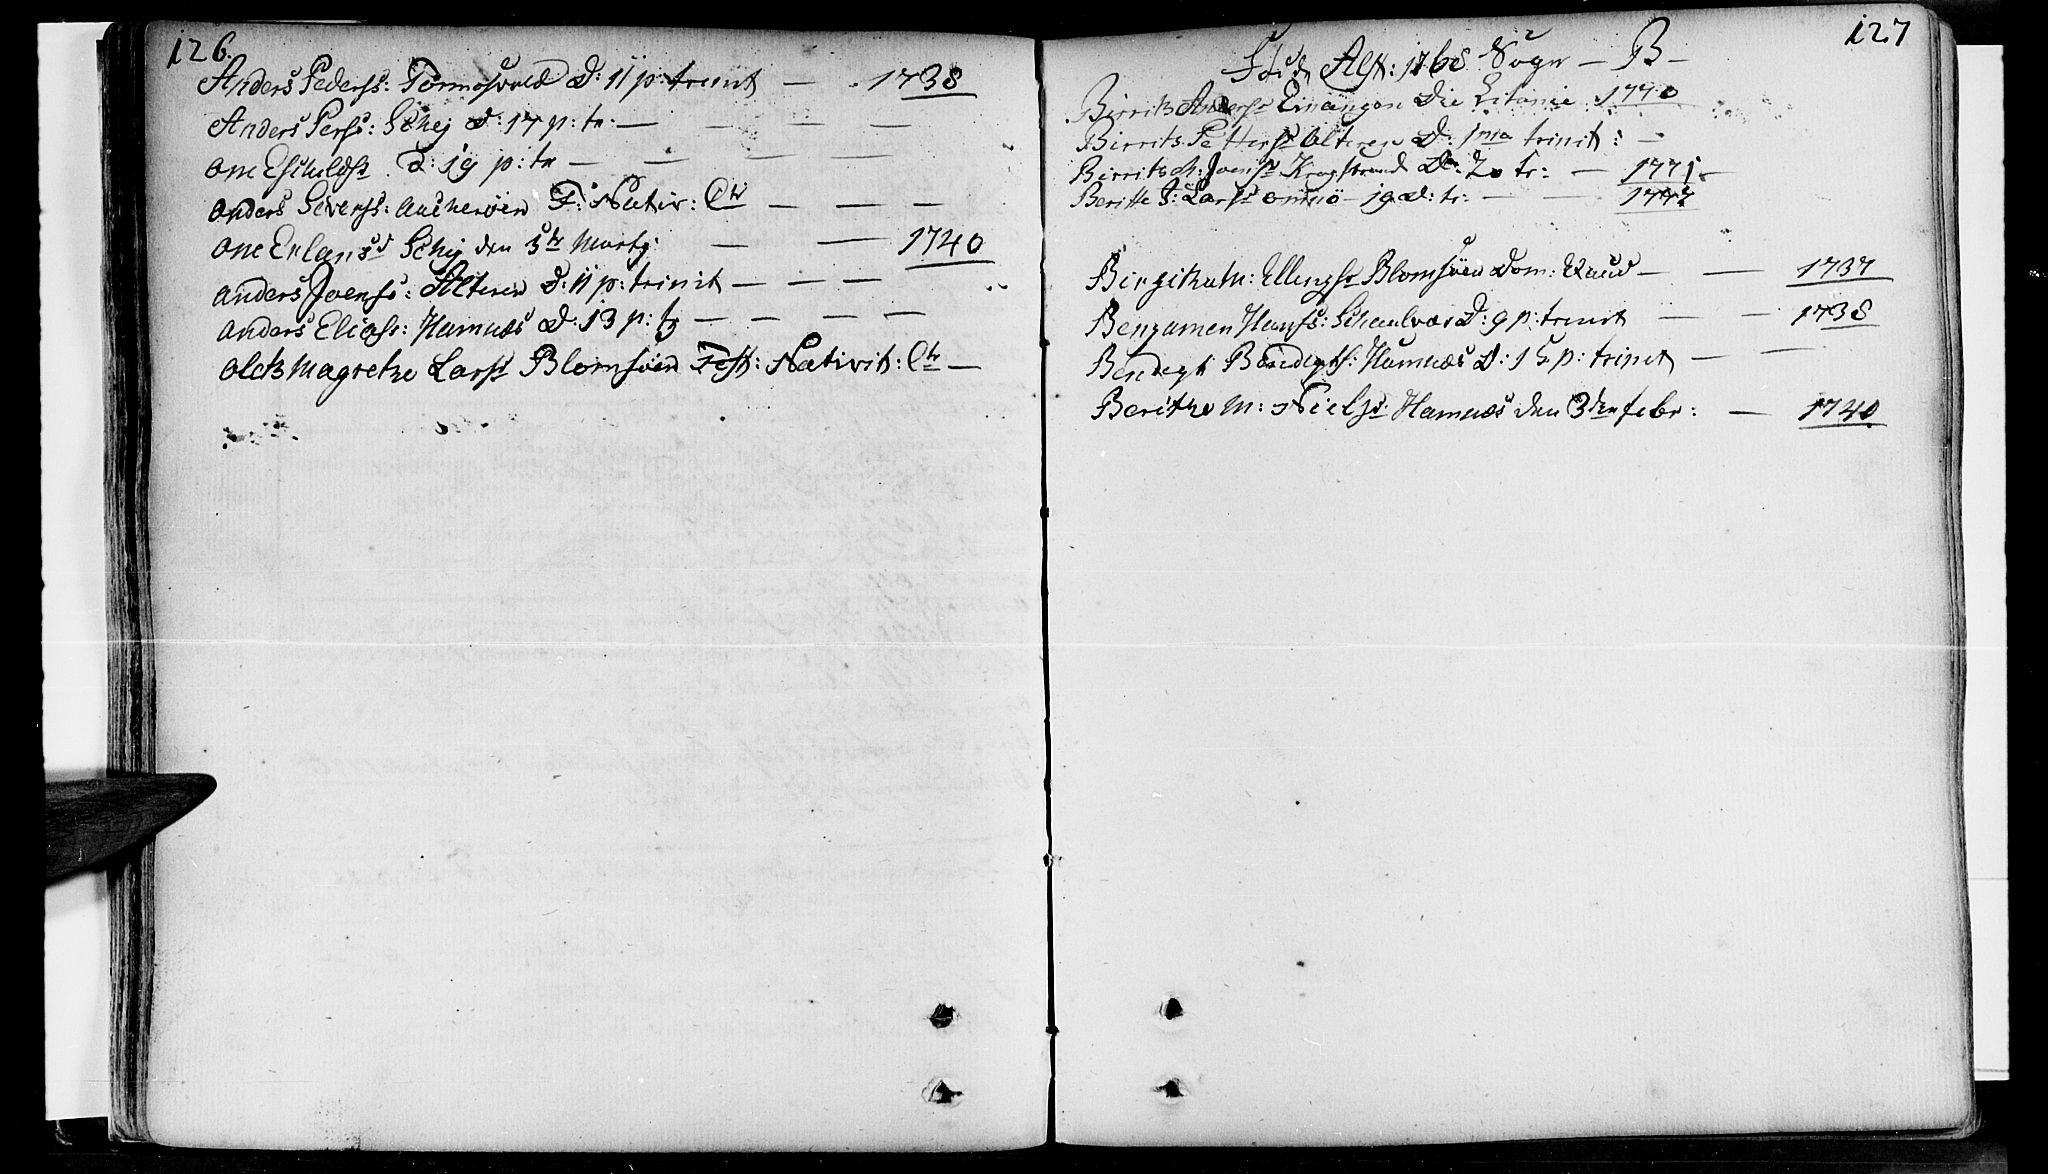 126.
Anders Peders: Tormosvold D: 11 p: trinit — 1738
Anders Pers: Schej D: 17 p: tr: — — — —
one Eschildsr D: 19 p: tr — — — —
anders Sivers: auscherøen F: Nativ: Chr — — —
one Erlansd Schej den 5te Martj: — — 1740
anders Joens: Alteren D: 11 p: trinit — — —
anders Elias: Hamnæs D: 13 p: tr — — — —
Magrethe Larsr Blomsøen Fest: Nativit: Chr —
127
Alst: 1768 Sogn — B —
Birrits Andersr Die Litanie 1770
Birrits Pettersr Alteren D: 1ma trinit: —
Birrits M: Joensr Krogstrand D: 20 tr: — 1771
Beritte J: Larsr omnø — 19 d: tr: — —
Birgithatr: Ellingsr Blomsøen Dom: — — 1737
Benjamen Hans: Schaalvær D: 9 p: trinit — — 1738
Bendigt Bendigts: Hamnæs D: 15 p: trinit — —
Berithe M: Nielsr Hamnæs den 3den febr: — 1740